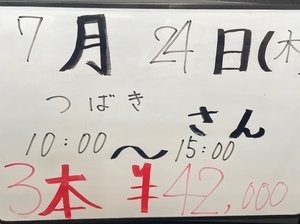 7月24日(木
つばき さん
10:00〜15:00
3本 ¥42,000